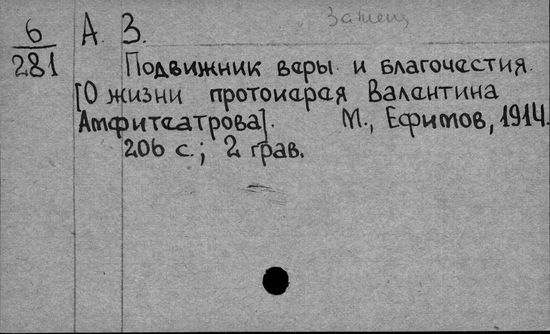 6
281
А. З.
Подвижник веры и благочестия.
[О жизни протоиерея Валентина
Амфитеатрова]. М., Ефимов, 1914.
206 с.; 2 грав.